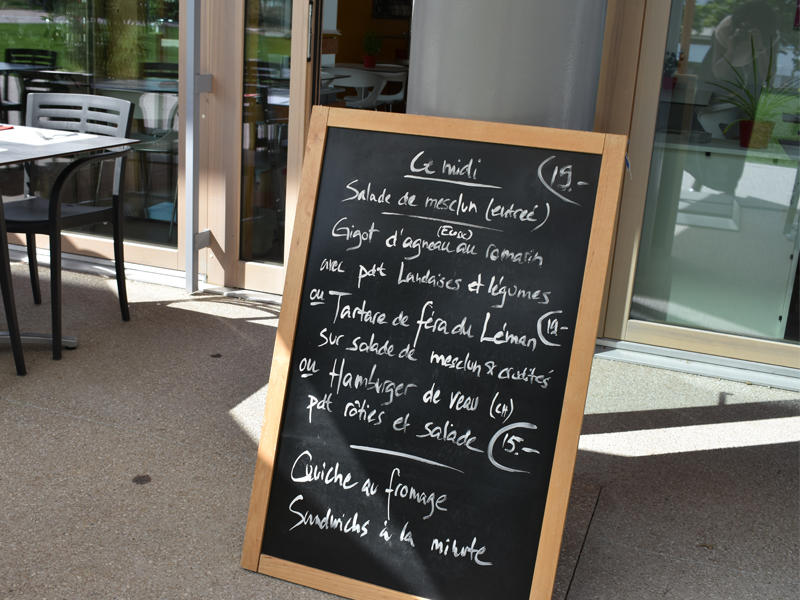 Ce midi 19.-
Salade de mesclun (entrée)
(Ecosse)
Gigot d'agneau au romarin
avec pdt Landaises et légumes
ou Tartare de féra du Léman 19-
sur salade de mesclun & crudités
ou Hamburger de veau (CH)
pdt rôties et salade 15.-
Quiche au fromage
Sandwichs à la minute